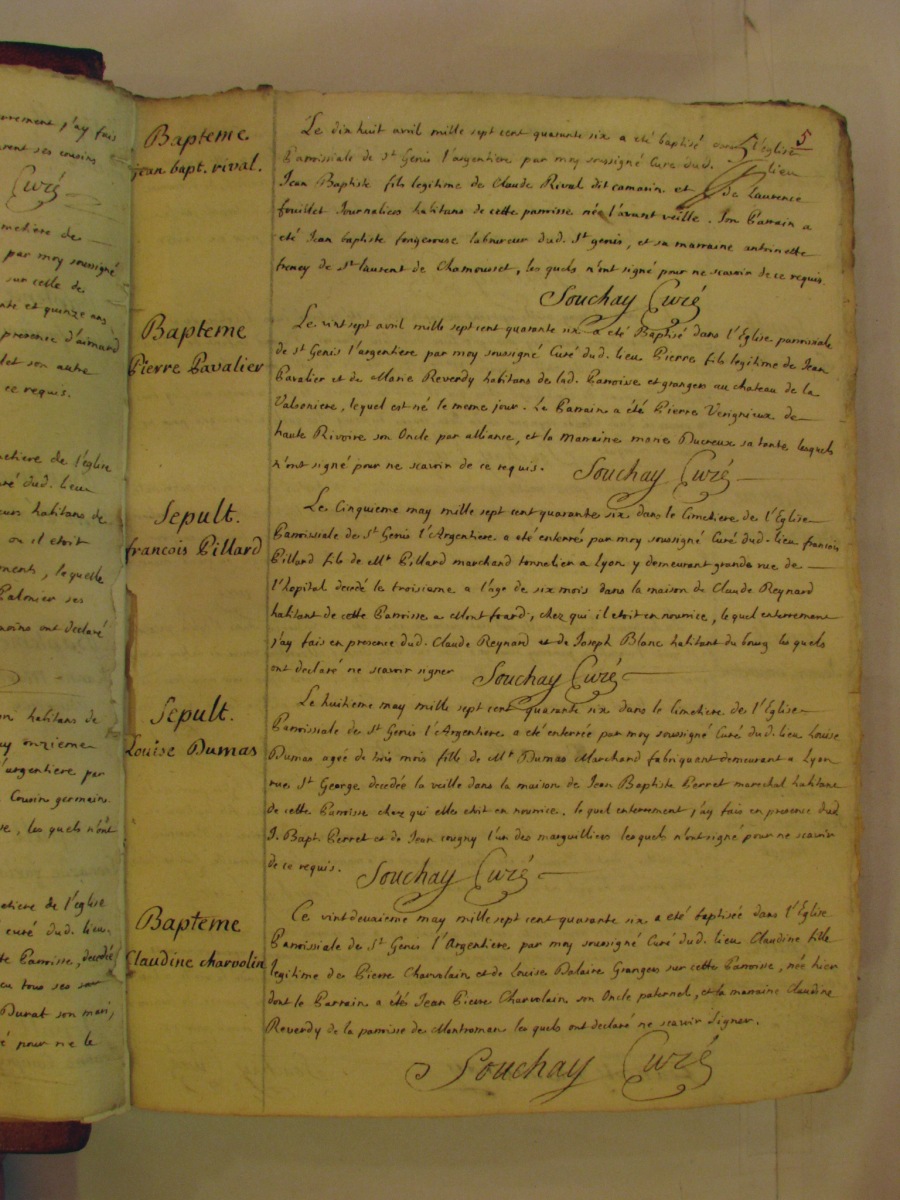 5
Bapteme
jean bapt. rival.
Le dix huit avril mille sept cent quarante six a eté baptisé dans l'Eglise
Parroissiale de St Genis l'argentiere par moy soussigné Curé dud. lieu
Jean Baptiste fils legitime de Claude Rival dit camarin et de Laurence
fouillet Journaliers habitans de cette parroisse née l'avant veille. Son Parrain a
eté Jean baptiste fougerouse laboureur dud. St genis, et sa marraine antoinette
freney de St laurent de Chamousset, les quels n'ont signé pour ne scavoir de ce requis
Souchay Curé
Bapteme
Pierre Pavalier
Le vint sept avril mille sept cent quarante six a eté Baptisé dans l'Eglise parroissiale
de St Genis l'argentiere par moy soussigné Curé dud. lieu Pierre fils legitime de Jean
Pavalier et de Marie Reverdy habitans de lad. Parroisse et grangers au chateau de la
Valsoniere, lequel est né le meme jour. Le Parrain a été Pierre Verignieux de
haute Rivoire son Oncle par alliance, et la Marraine marie Ducreux sa tante lesquels
n'ont signé pour ne scavoir de ce requis. Souchay Curé
Sepult.
francois Pillard
Le Cinquieme may mille sept cent quarante six dans le Cimetiere de l'Eglise
Parroissiale de St Genis l'Argentiere a eté enterré par moy soussigné Curé dud. lieu francois
Pillard fils de Mr Pillard marchand tonnelier a Lyon y demeurant grande rue de
l'hopital decedé le troisieme a l'age de six mois dans la maison de Claude Reynard
habitant de cette Parroisse a Mont froard, chez qui il etoit en nourice, le quel enterrement
j'ay fais en presence dud. Claude Reynard et de Joseph Blanc habitant du bourg les quels
ont declaré ne scavoir signer Souchay Curé
Sepult.
Louise Dumas
Le huitieme may mille sept cent quarante six dans le Cimetiere de l'Eglise
Parroissiale de St Genis l'Argentiere a eté enterrée par moy soussigné Curé dud. lieu Louise
Dumas agée de trois mois fille de Mr Dumas Marchand fabriquant demeurant a Lyon
rue St George decedée la veille dans la maison de Jean Baptiste Perret marechal habitant
de cette Parroisse chez qui elle etoit en nourice, le quel enterrement j'ay fais en presence dud.
J. Bapt. Perret et de Jean cougny l'un des marguilliers lesquels n'ont signé pour ne scavoir
de ce requis. Souchay Curé
Bapteme
Claudine charvolin
Ce vint deuxieme may mille sept cent quarante six a eté baptisée dans l'Eglise
Parroissiale de St Genis l'Argentiere par moy soussigné Curé dud. lieu Claudine fille
legitime de Pierre Charvolain et de Louise Balaire Grangers sur cette Parroisse, née hier
dont le Parrain a eté Jean Pierre Charvolain son Oncle paternel, et la marraine Claudine
Reverdy de la parroisse de Montroman les quels ont declaré ne scavoir signer.
Souchay Curé